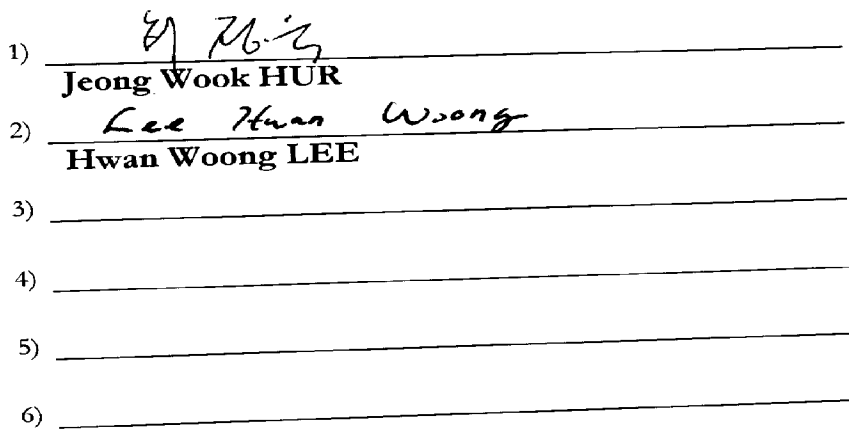 1) 허정욱
Jeong Wook HUR
2) Lee Hwan Woong
Hwan Woong LEE
3)
4)
5)
6)